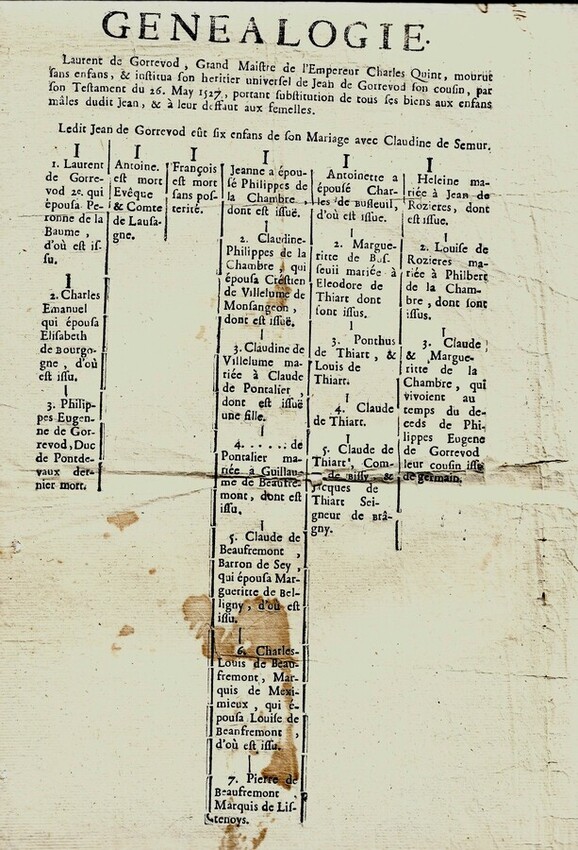 GENEALOGIE.
Laurent de Gorrevod, Grand Maiſtre de l'Empereur Charles Quint, mourut
ſans enfans, & inſtitua ſon heritier univerſel de Jean de Gorrevod ſon couſin, par
ſon Teſtament du 26. May 1527, portant ſubſtitution de tous ſes biens aux enfans
mâles dudit Jean, & à leur deffaut aux femelles.
Ledit Jean de Gorrevod eût ſix enfans de ſon Mariage avec Claudine de Semur.
I
1. Laurent
de Gorre-
vod 2e. qui
épouſa Pe-
ronne de la
Baume,
d'où eſt iſ-
ſu.
I
2. Charles
Emanuel
qui épouſa
Eliſabeth
de Bourgo-
gne, d'où
eſt iſſu.
I
3. Philip-
pes Eugen-
ne de Gor-
revod, Duc
de Pontde-
vaux der-
nier mort.
I
Antoine.
eſt mort
Evéque
& Comte
de Lauſa-
gne.
I
François
eſt mort
ſans poſ-
terité.
I
Jeanne a épou-
ſé Philippes de
la Chambre,
dont eſt iſſuë.
I
2. Claudine-
Philippes de la
Chambre, qui
épouſa Créſtien
de Villelume de
Monſangeon,
dont eſt iſſuë.
I
3. Claudine de
Villelume ma-
riée à Claude
de Pontalier,
dont eſt iſſuë
une fille.
I
4. . . . . . de
Pontalier ma-
riée à Guillau-
me de Beaufre-
mont, dont eſt
iſſu.
I
5. Claude de
Beaufremont,
Barron de Sey,
qui épouſa Mar-
gueritte de Bel-
ligny, d'où eſt
iſſu.
I
6. Charles-
Louis de Beau-
fremont, Mar-
quis de Mexi-
mieux, qui é-
pouſa Louiſe de
Beanfremont,
d'où eſt iſſu.
I
7. Pierre de
Beaufremont
Marquis de Liſ-
tenoys.
I
Antoinette a
épouſé Char-
les de Buſſeuil,
d'où eſt iſſue.
I
2. Margue-
ritte de Buſ-
ſeuil mariée à
Eleodore de
Thiart dont
ſont iſſus.
I
3. Ponthus
de Thiart, &
Louis de
Thiart.
I
4. Claude
de Thiart.
I
5. Claude de
Thiart, Com-
de Biſſy, &
Jacques de
Thiart Sei-
gneur de Brâ-
gny.
I
Heleine ma-
riée à Jean de
Rozieres, dont
eſt iſſue.
I
2. Louiſe de
Rozieres ma-
riée à Philbert
de la Cham-
bre, dont ſont
iſſus.
I
3. Claude
& Margue-
ritte de la
Chambre, qui
vivoient au
temps du de-
ceds de Phi-
lippes Eugene
de Gorrevod
leur couſin iſſu
de germain.